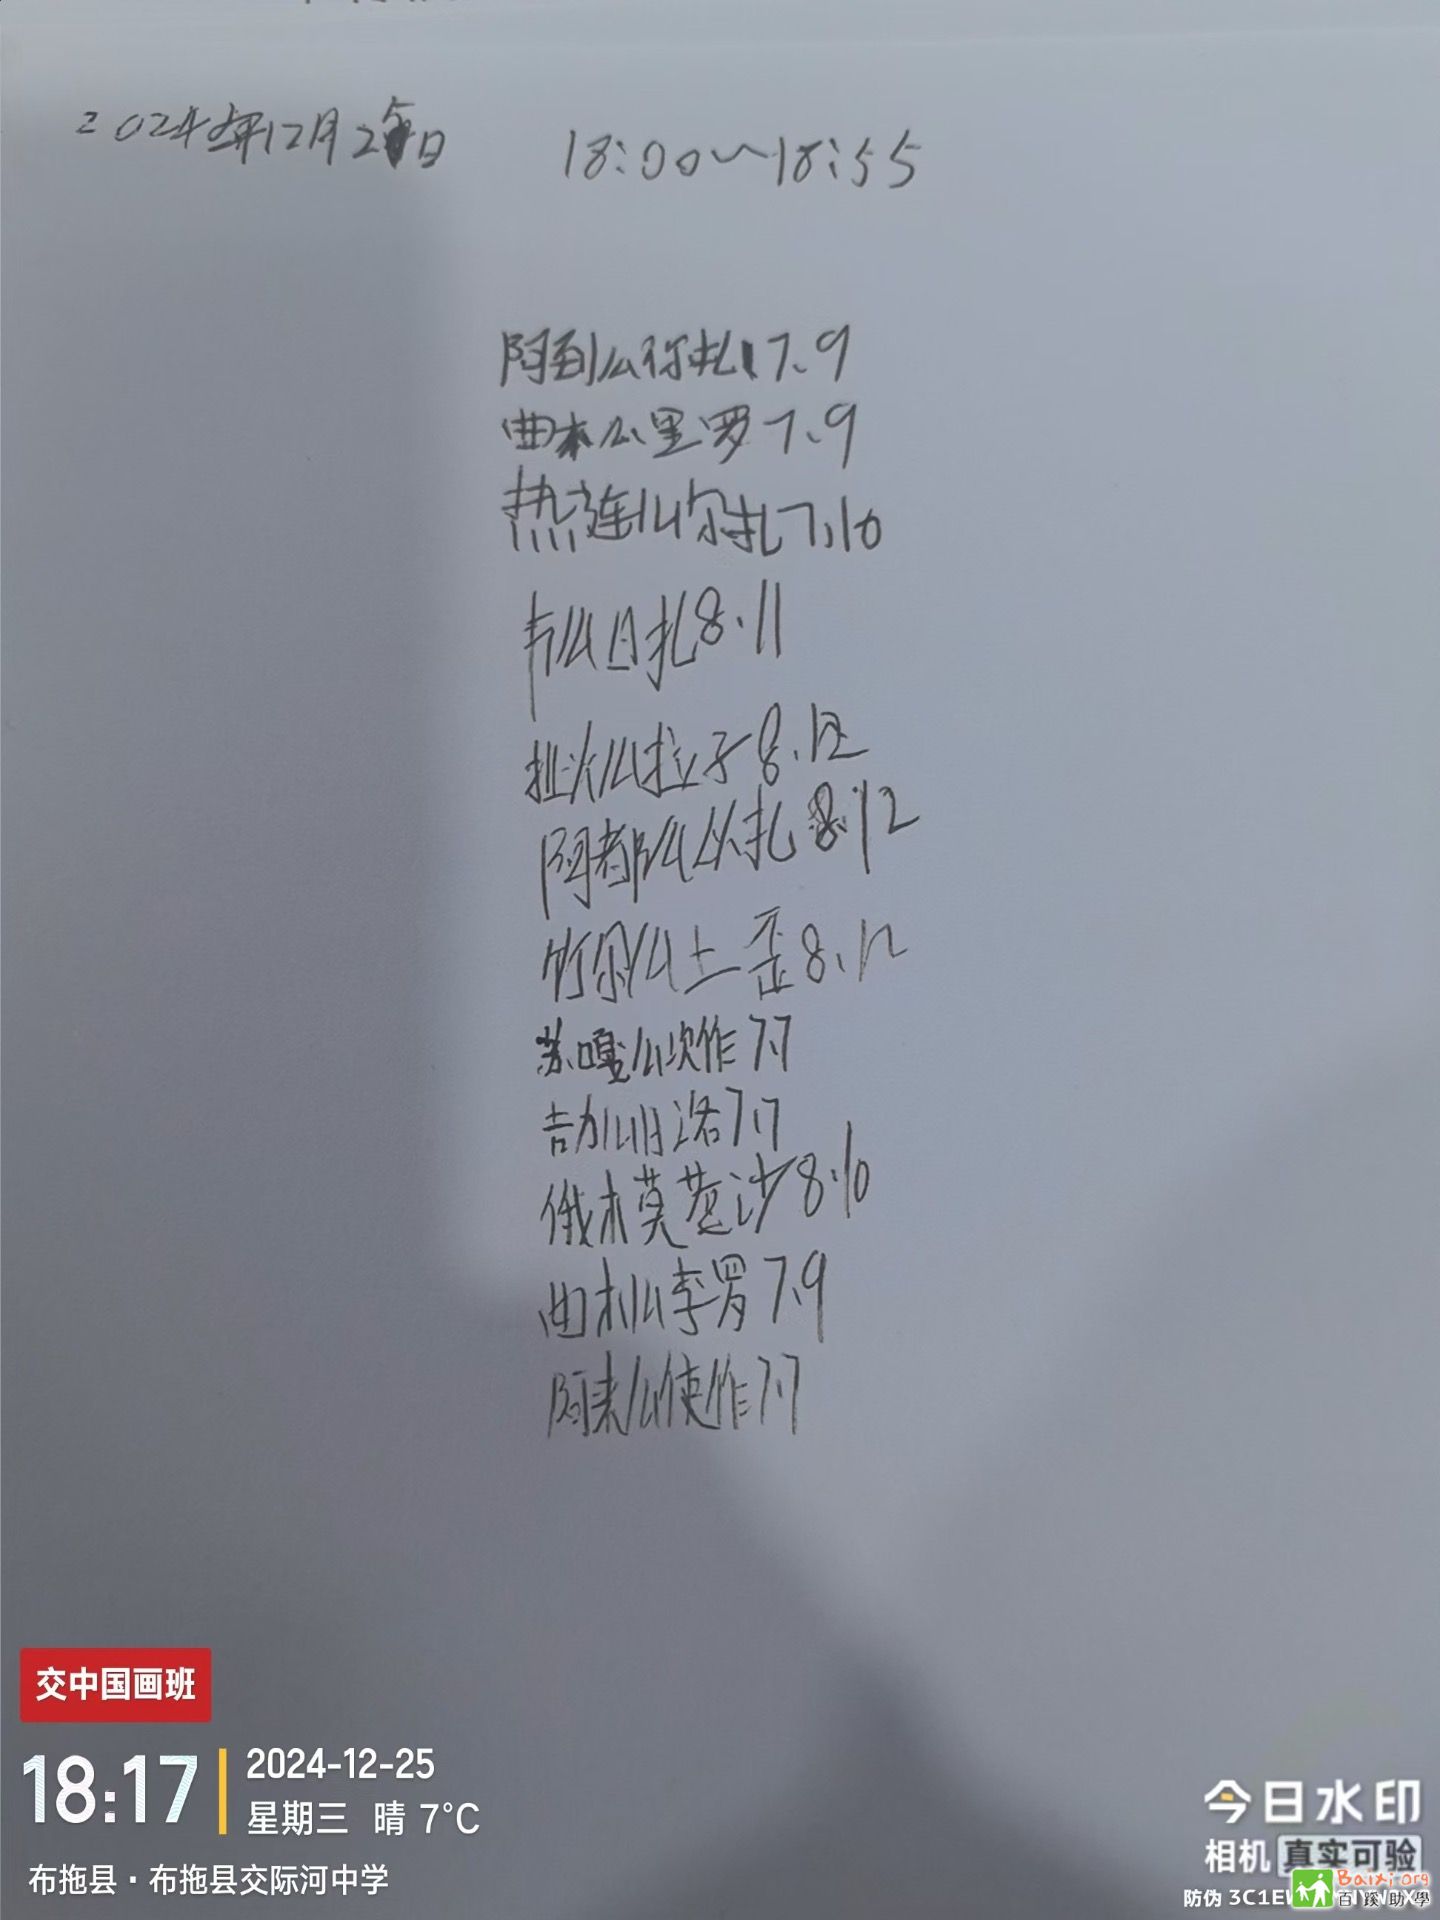 2024年12月25日 18:00~18:55
阿到么称扎 7.9
曲木么里罗 7.9
热连么尔扎 7.10
韦么日扎 8.11
扯次么拉子 8.12
阿都么从扎 8.12
竹尔么土歪 8.12
苏嘎么次作 7.7
吉加 洛 7.7
俄木莫 沙 8.10
曲木么李罗 7.9
阿 么使作 7.7
交中国画班
18:17
2024-12-25
星期三 晴 7°C
布拖县·布拖县交际河中学
今日水印
相机 真实可验
防伪 3C1E
Baixi.org
百蹊助學